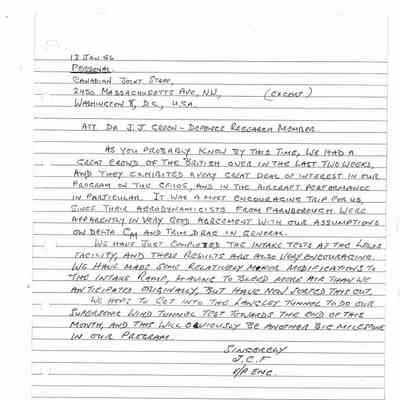 13 JAN 56
PERSONAL
CANADIAN JOINT STAFF,
2450 MASSACHUSETTS AVE, NW,
(EXCERPT)
WASHINGTON 8, D.C., U.S.A.
ATT. DR J.J. GREEN - DEFENCE RESEARCH MEMBER
AS YOU PROBABLY KNOW BY THIS TIME, WE HAD A
GREAT CROWD OF THE BRITISH OVER IN THE LAST TWO WEEKS,
AND THEY EXHIBITED A VERY GREAT DEAL OF INTEREST IN OUR
PROGRAM ON THE CF105, AND IN THE AIRCRAFT PERFORMANCE
IN PARTICULAR. IT WAS A MOST ENCOURAGING TRIP FOR US,
SINCE THEIR AERODYNAMICISTS FROM FARNBOROUGH WERE
APPARENTLY IN VERY GOOD AGREEMENT WITH OUR ASSUMPTIONS
ON DELTA CM AND TRIM DRAG IN GENERAL.
WE HAVE JUST COMPLETED THE INTAKE TESTS AT THE LEWIS
FACILITY, AND THESE RESULTS ARE ALSO VERY ENCOURAGING.
WE HAVE MADE SOME RELATIVELY MINOR MODIFICATIONS TO
THE INTAKE RAMP, HAVING TO BLEED MORE AIR THAN WE
ANTICIPATED ORIGINALLY, BUT HAVE NOW SORTED THIS OUT.
WE HOPE TO GET INTO THE LANGLEY TUNNEL TO DO OUR
SUPERSONIC WIND TUNNEL TEST TOWARDS THE END OF THIS
MONTH, AND THIS WILL OBVIOUSLY BE ANOTHER BIG MILESTONE
IN OUR PROGRAM.
SINCERELY
J.C.F
V/P ENG